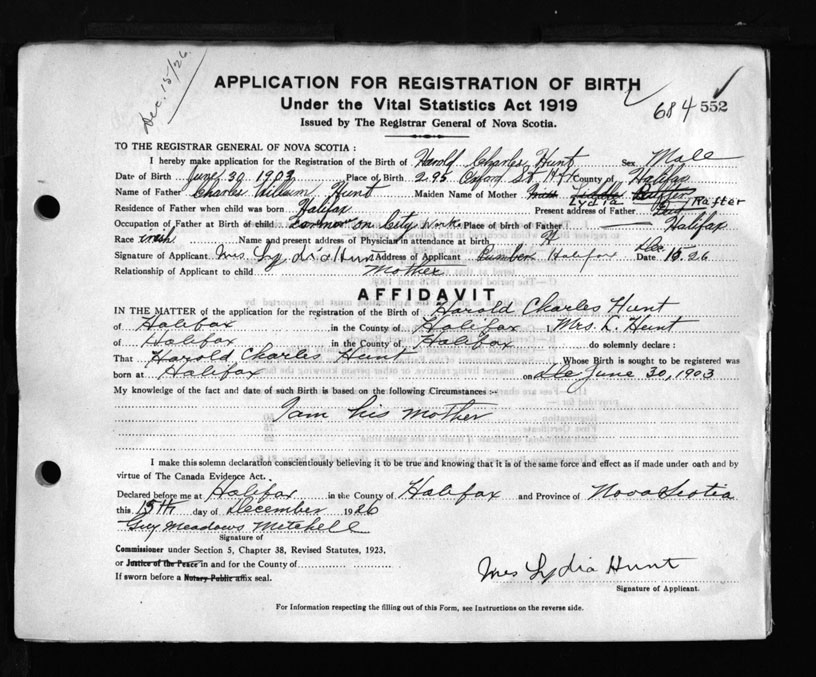 Dec. 15/26
APPLICATION FOR REGISTRATION OF BIRTH
Under the Vital Statistics Act 1919
684 552
Issued by The Registrar General of Nova Scotia.
TO THE REGISTRAR GENERAL OF NOVA SCOTIA :
I hereby make application for the Registration of the Birth of Harold Charles Hunt Sex Male
Date of Birth June 30 1903 Place of Birth 295 Oxford St Hfx County of Halifax
Name of Father Charles William Hunt Maiden Name of Mother Lydia Rafter
Residence of Father when child was born Halifax Present address of Father
Occupation of Father at Birth of child on City Works Place of birth of Father Halifax
Race Irish Name and present address of Physician in attendance at birth
Signature of Applicant Mrs Lydia Hunt Address of Applicant Halifax Date Dec 15.26
Relationship of Applicant to child Mother
AFFIDAVIT
IN THE MATTER of the application for the registration of the Birth of Harold Charles Hunt
of Halifax in the County of Halifax Mrs. L. Hunt
of Halifax in the County of Halifax do solemnly declare :
That Harold Charles Hunt Whose Birth is sought to be registered was
born at Halifax on June 30, 1903
My knowledge of the fact and date of such Birth is based on the following Circumstances :-
I am his mother
I make this solemn declaration conscientiously believing it to be true and knowing that it is of the same force and effect as if made under oath and by
virtue of The Canada Evidence Act.
Declared before me at Halifax in the County of Halifax and Province of Nova Scotia
this 15th day of December 1926
Guy Meadows Mitchell
Signature of
Commissioner under Section 5, Chapter 38, Revised Statutes, 1923.
or Justice of the Peace in and for the County of
If sworn before a Notary Public affix seal.
Mrs Lydia Hunt
Signature of Applicant.
For Information respecting the filling out of this Form, see Instructions on the reverse side.